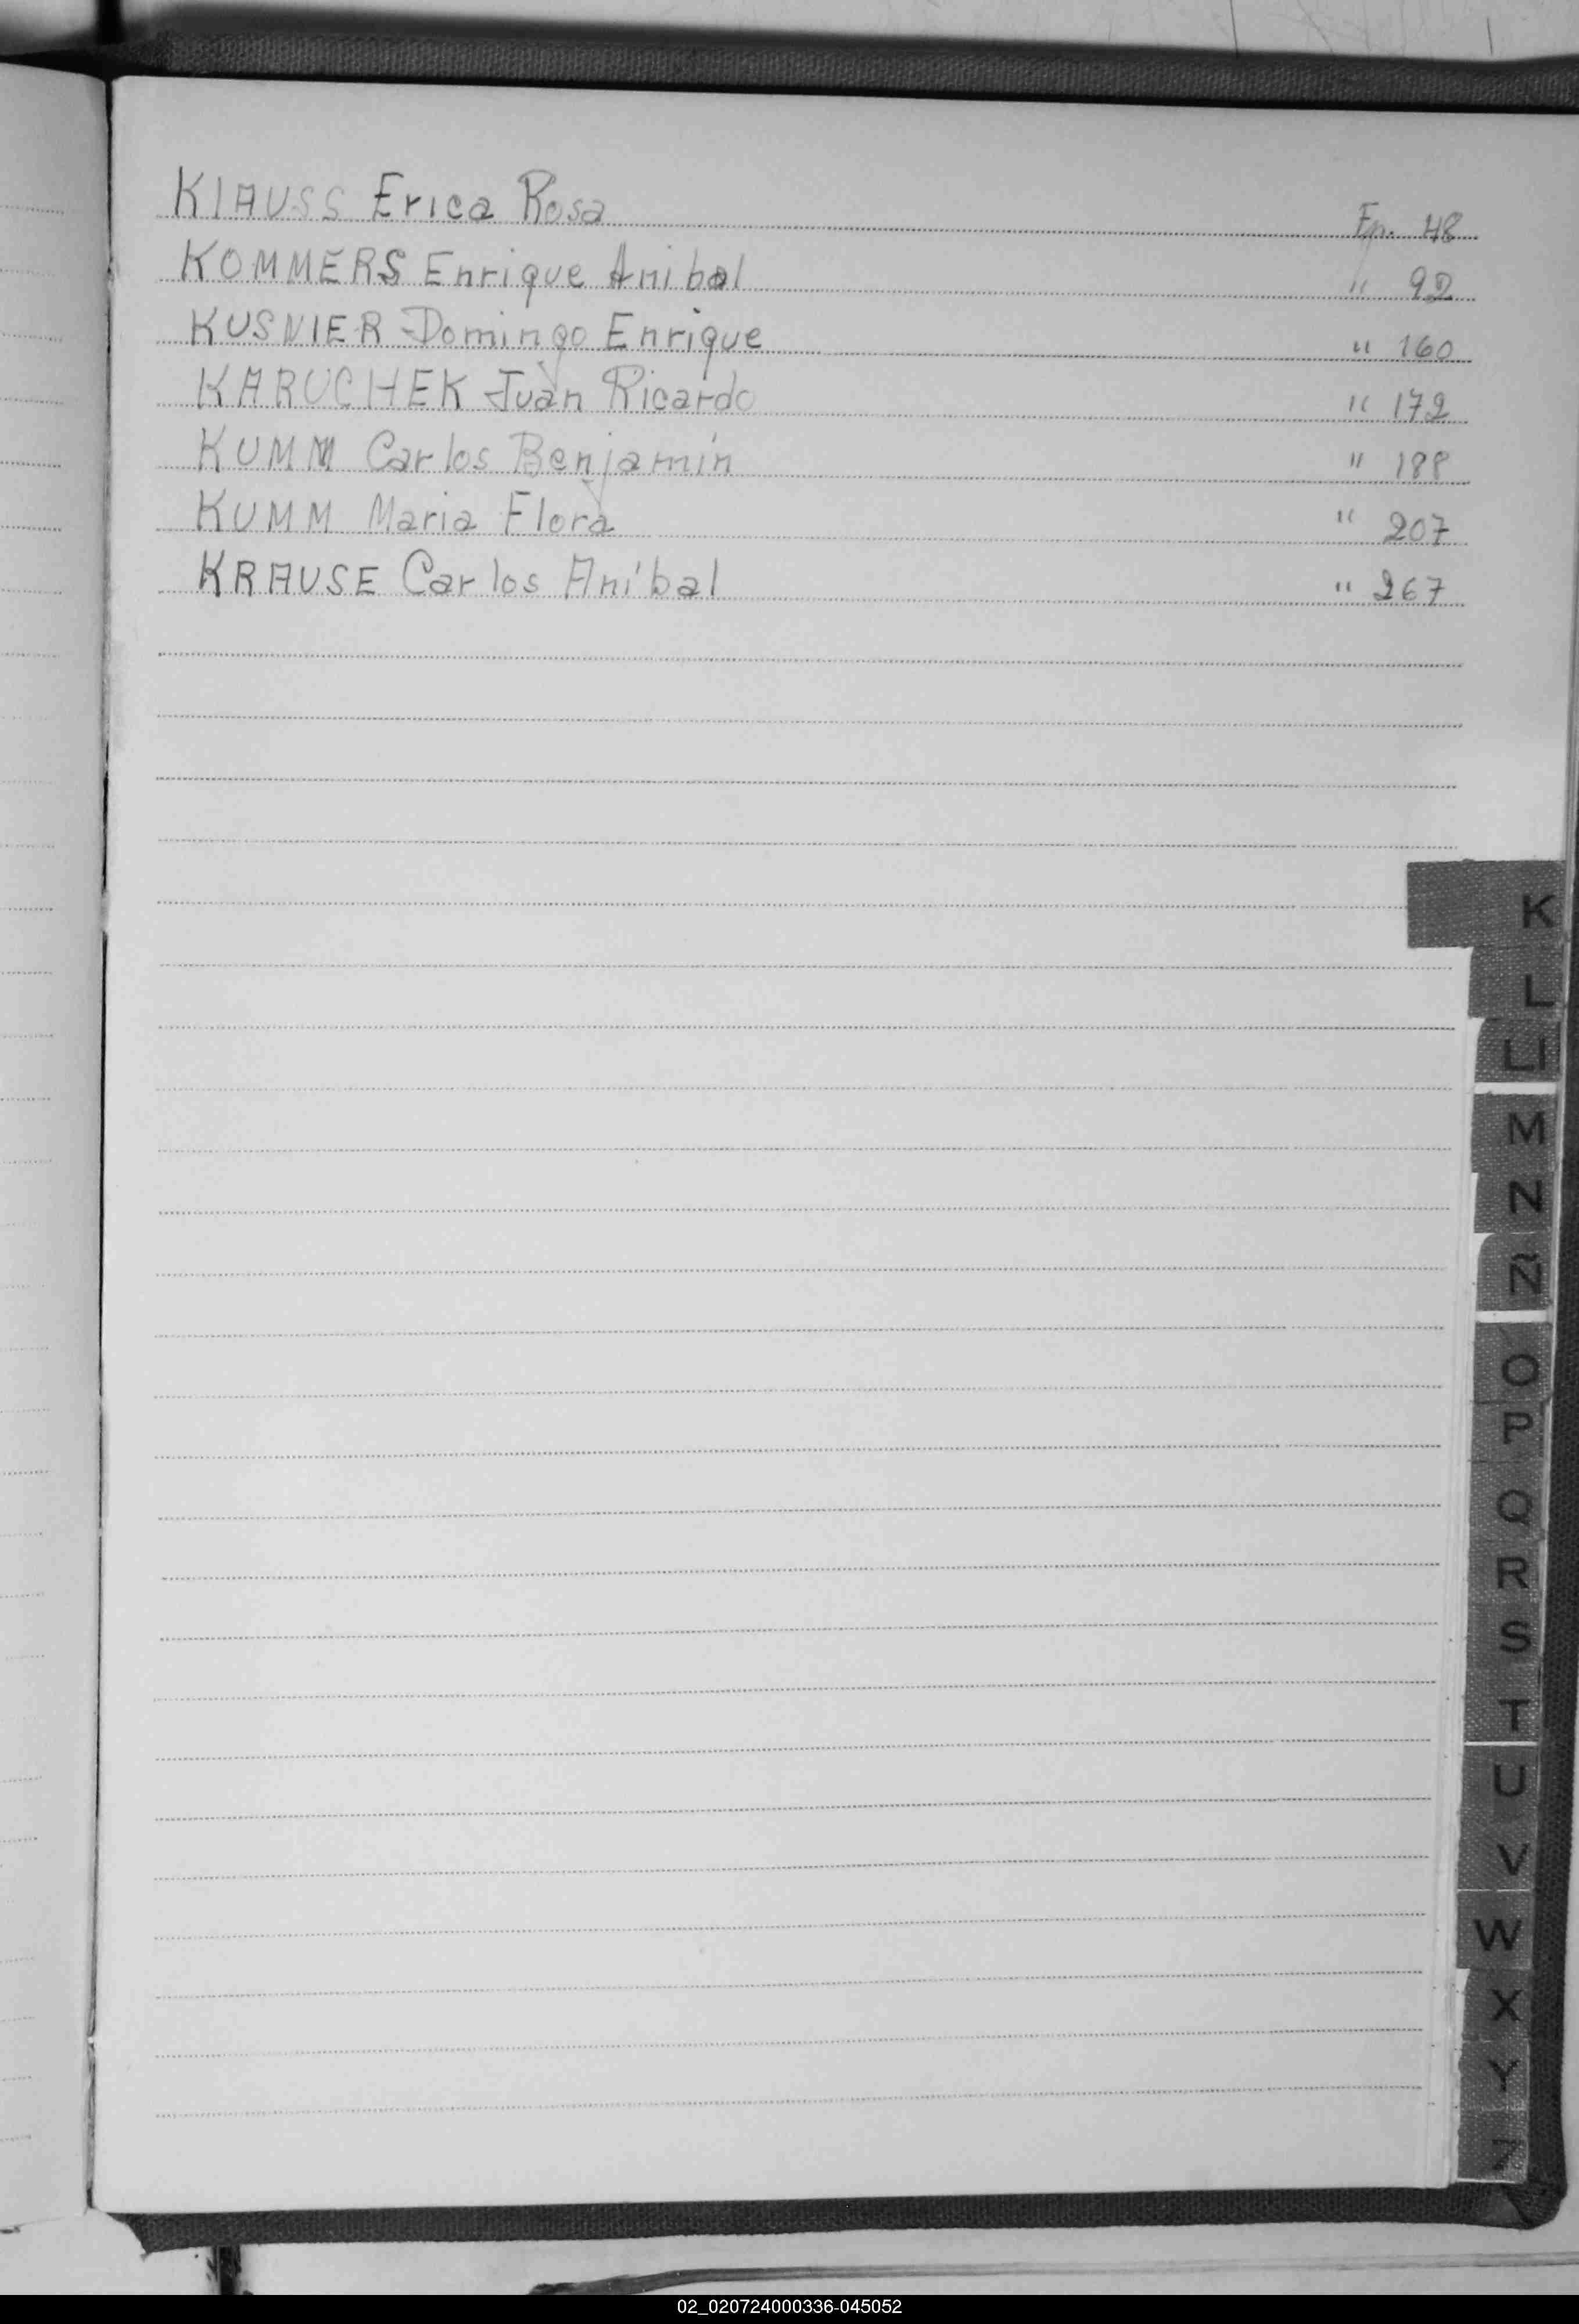 KlAUSS Erica Rosa Fp. 48
KOMMERS Enrique Anibal " 92
KUSNIER Domingo Enrique " 160
KARUCHEK Juan Ricardo " 172
KUMM Carlos Benjamín " 188
KUMM Maria Flora " 207
KRAUSE Carlos Aníbal " 267
K
L
Ll
M
N
Ñ
O
P
Q
R
S
T
U
V
W
X
Y
Z
02_020724000336-045052